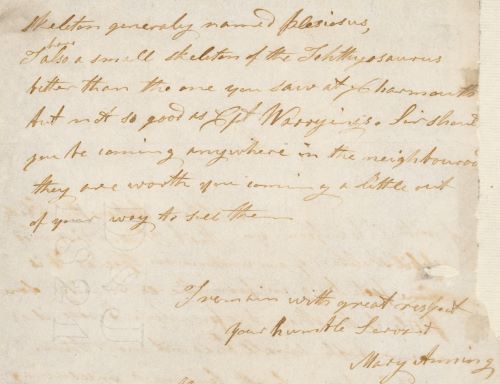 Skeleton generaly named plesiosus,
I also a small skeleton of the Ichthyosaurus
better than the one you saw at Charmouth
but not so good as Cpt Warrying's. Sir shoul
you be coming anywhere in the neighbourou
they are worth you coming a little out
of your way to see them
I remain with great respect
your humble Servant
Mary Anning